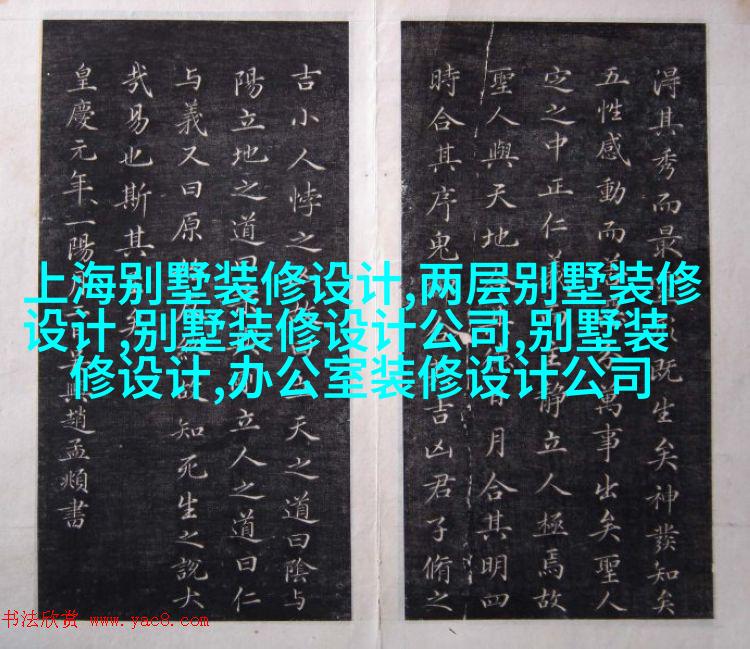 淂其秀而最既生矣神發知矣
五性感動而萬事出矣聖人
㝎之中正仁義静立人極焉故
聖人與天地日月合其明四
時合其序鬼吉凶君子脩之
吉小人悖之天之道曰陰与
陽立地之道曰立人之道曰仁
与義又曰原知死生之說大
哉易也斯其
皇慶元年一陽月興趙孟頫書
上海别墅装修设计,两层别墅装修
设计,别墅装修设计公司,别墅装
修设计,办公室装修设计公司
书法欣赏 www.yac8.com